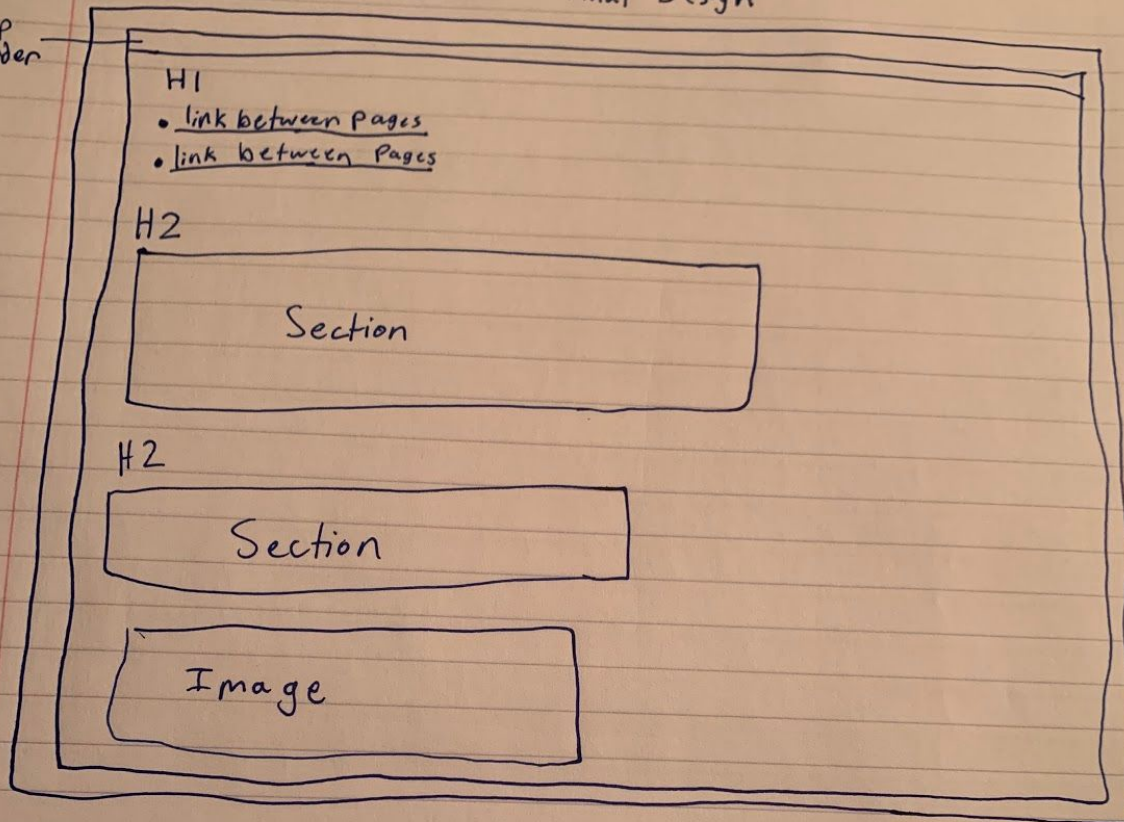 Design
H1
• link between pages
• link between Pages
H2
Section
H2
Section
Image